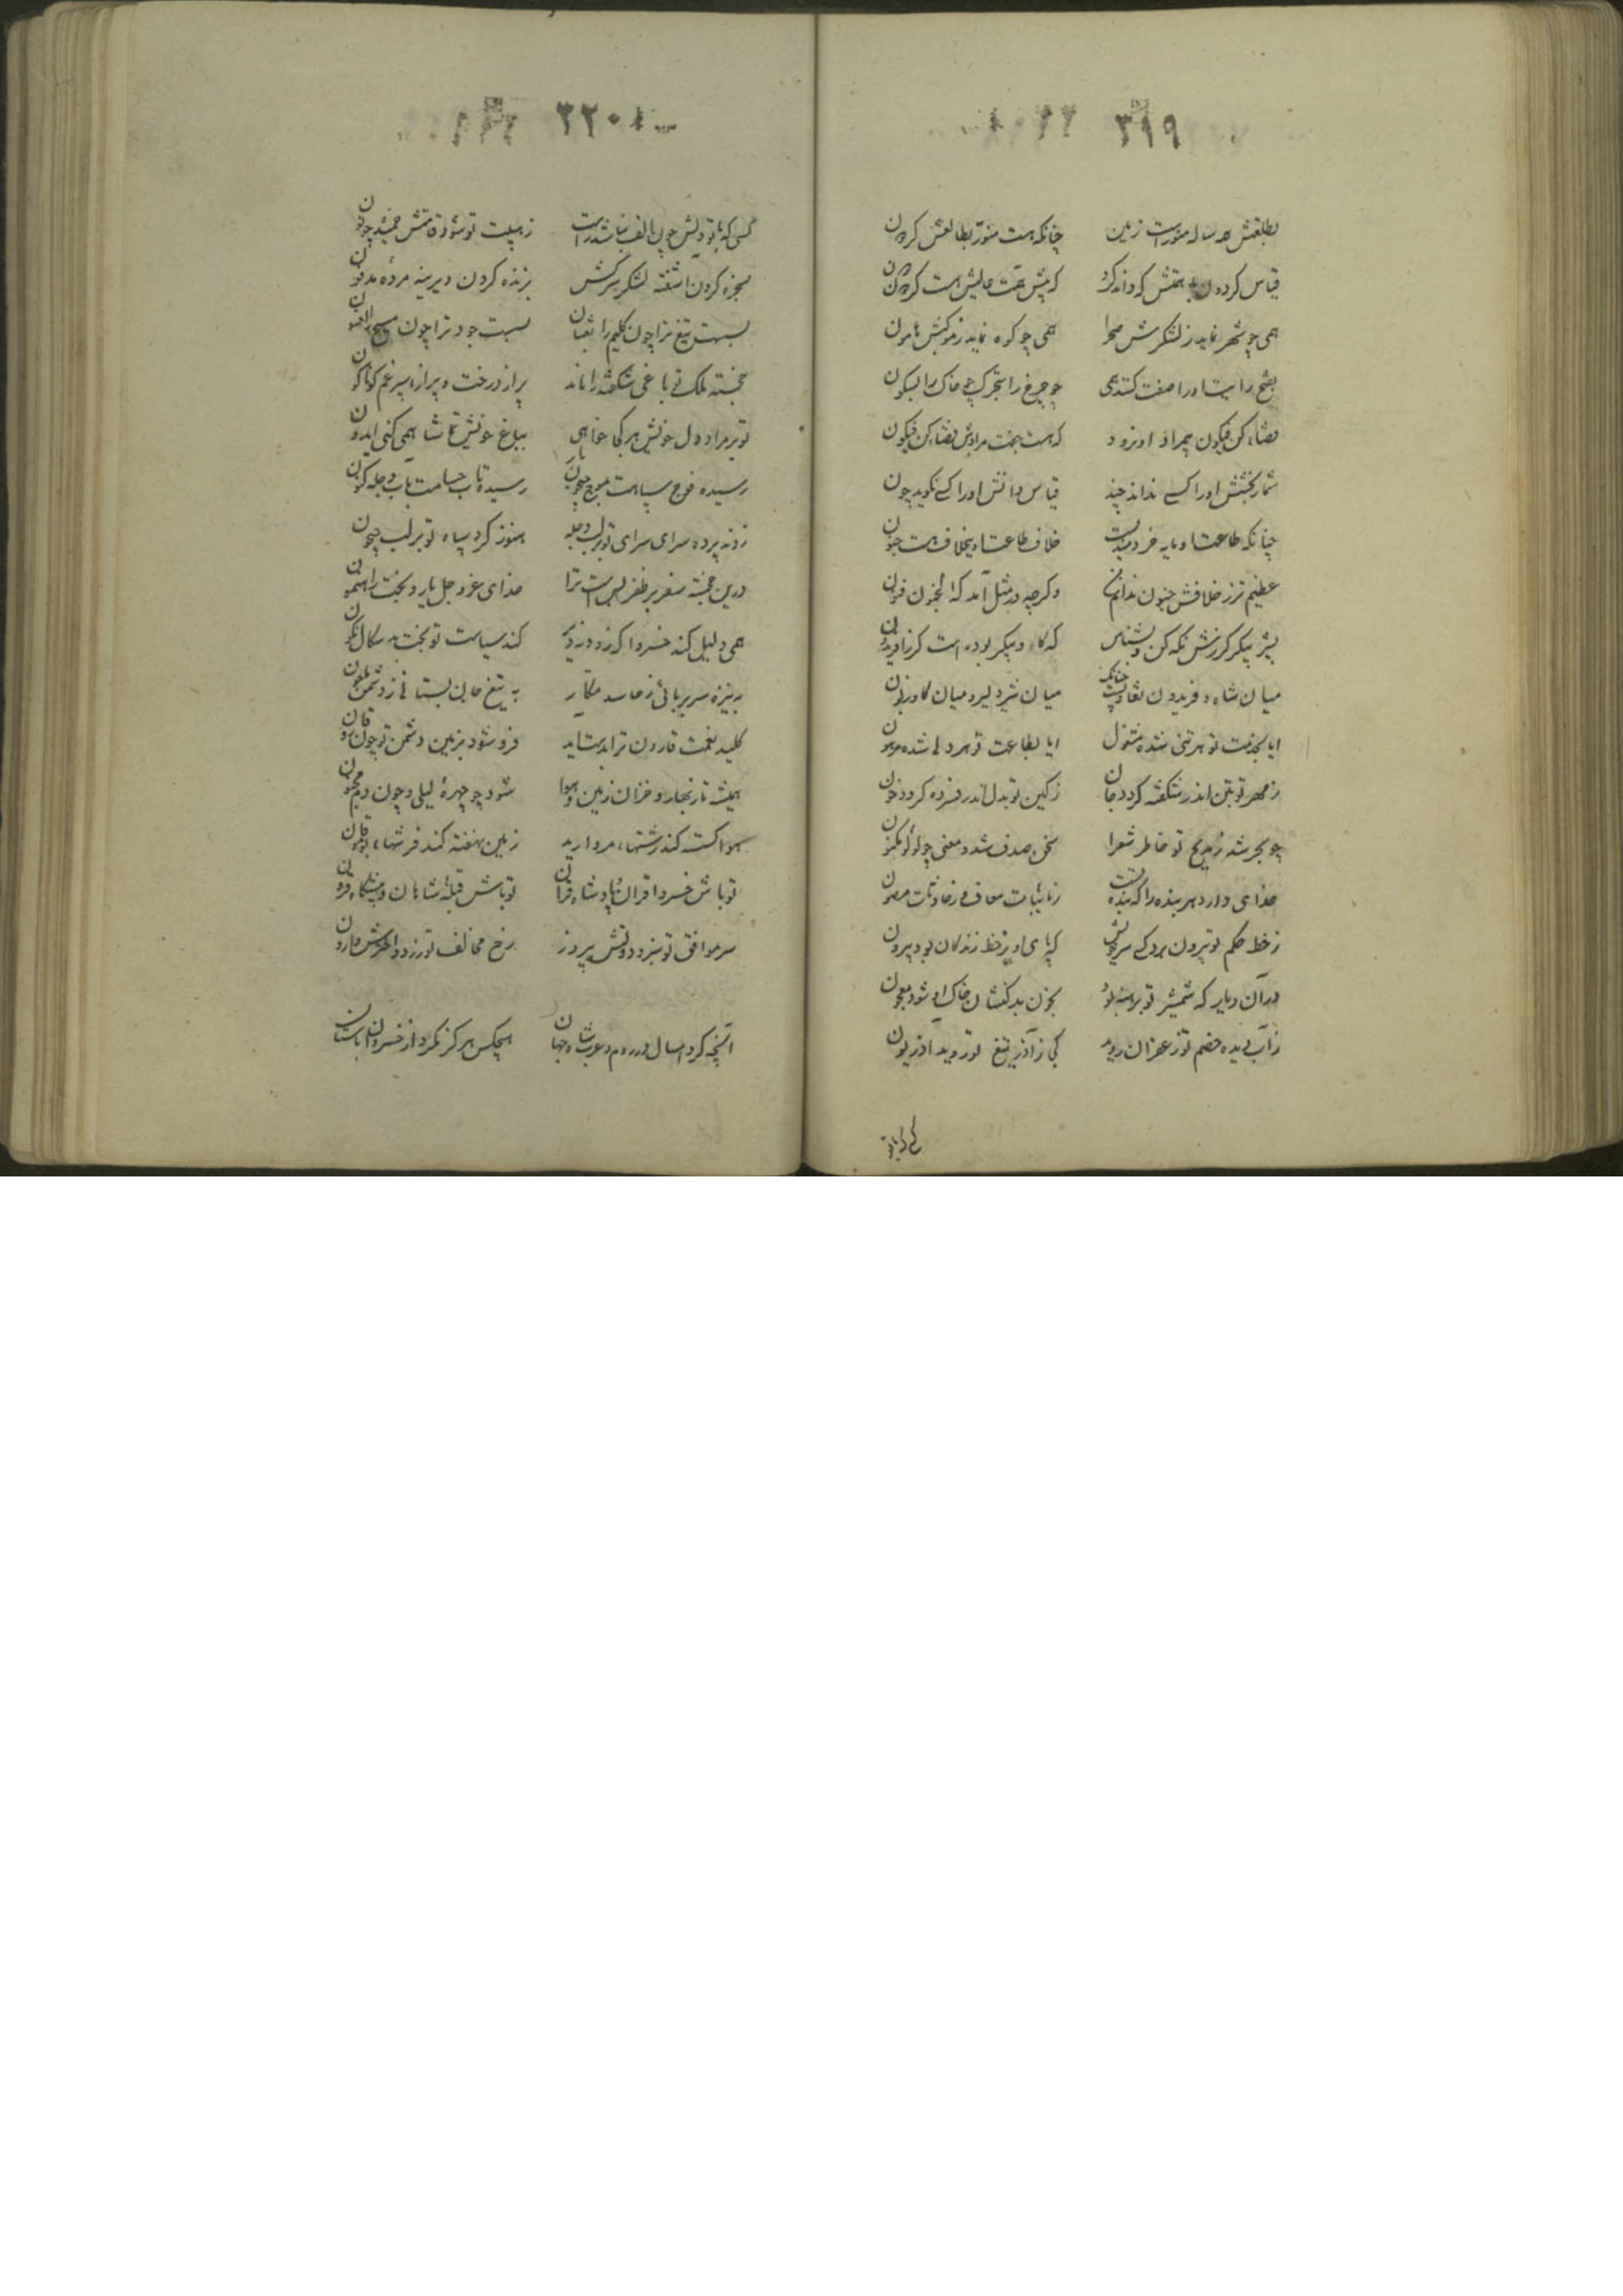 ۳۱۹
بطلعتش همه ساله منورست زمین چنانکه هست منور بطالعش گردون
قیاس گردون با همتش که داند کرد که پیش تخت عالیش هست گردون
همی چو شهر نماید ز لشکرش صحرا همی چو کوه نماید ز موکبش هامون
بفتح رایت او را صفت کنند همی چو چرخ را بتحرک چو خاک را بسکون
قضاء کن فیکون بر مراد او نرود که هست جفت مرادش قضاء کن فیکون
شمار بخشش او را کسی نداند چند قیاس دانش او را کسی نگوید چون
چنانکه طاعت او مایه خردمندیست خلاف طاعت او بخلاف هست جنون
عظیم‌تر ز خلافش جنون ندانم وگرچه در مثل آمد که الجنون فنون
بشیر پیکر گرزش نگه کن و بشناس که گاو پیکر بوده است گرز افریدون
میان شاه و فریدون تفاوتست چنانک میان شیر دلیر و میان گاو زبون
ایا بخدمت تو هر تنی شده مشغول ایا بطاعت تو هر دلی شده مرهون
ز مهر تو بتن اندر شکفته گردد جان ز کین تو بدل اندر فسرده گردد خون
چو بحر شد ز مدیح تو خاطر شعرا سخن صدف شد و معنی چو لؤلؤ مکنون
خدای دارد هر بنده را که بنده تست ز نایبات معاف و ز حادثات مصون
ز خط حکم تو بیرون برد کسی سر خویش که پای او ز خط زندگان بود بیرون
در آن دیار که شمشیر تو برهنه بود بخون بدکنشان خاک او شود معجون
ز آب دیده خصم تو زعفران روید کی ز آذر تیغ تو روید آذریون
کسی که با تو
۳۲۰
کسی که با تو دلش چون الف نباشد راست ز هیبت تو شود قامتش خمیده چو نون
مسخره کردن آشفته لشکر سرکش بزنده کردن دیرینه مرده مدفون
بست تیغ ترا چون کلیم را ثعبان بست جود ترا چون مسیح را افسون
خجسته ملک تو باغی شکفته را ماند پر از درخت و پر از سپرغم گوناگون
تو بر مراد دل خویش هر کجا خواهی بباغ خویش تماشا همی کنی ایدون
رسیده فوج سپاهت بموج جیحون بار رسیده تاب حسامت بآب دجله کنون
زدند پرده سرای سرای تو بر لب دجله هنوز گرد سپاه تو بر لب جیحون
درین خجسته سفر بر ظفر بس است ترا خدای عز و جل یار و بخت راهنمون
همی دلیل کند خسروا که زود نه دیر کند سیاست تو بخت بد سگال نگون
به نیزه سر بربائی ز حاسد مکار به تیغ جان بستانی ز دشمن ملعون
کلید نعمت قارون ترا بدست آید فرو شود بزمین دشمن تو چون قارون
همیشه تا ز بهار و خزان زمین و هوا شود چو چهره لیلی و چون دم مجنون
هوا گسسته کند رشتهاء مروارید زمین نهفته کند فرشهاء بوقلمون
تو باش خسرو اقران و پادشاه قران تو باش قبله شاهان و پیشگاه قرون
سر موافق تو سبز و دولتش پیروز رخ مخالف تو زرد و اخترش وارون
آنچه کرد امسال در روم و عرب شاه جهان هیچکس هرگز نکرد از خسروان باستان